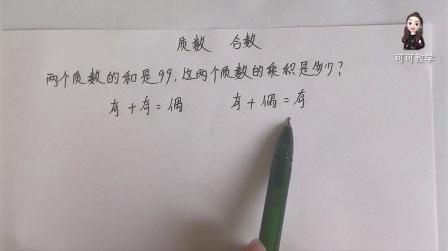 质数 合数
可可数学
两个质数的和是99,这两个质数的乘积是多少?
奇+奇=偶 奇+偶=奇